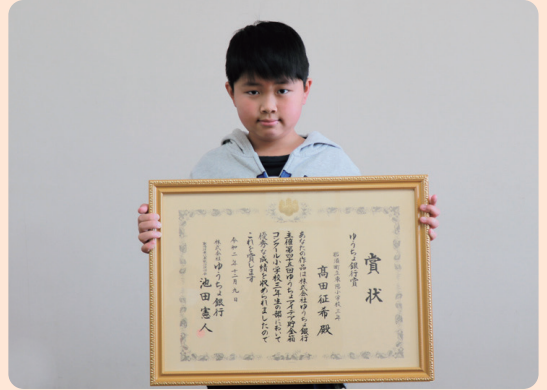 賞状
ゆうちょ銀行賞
高田征希殿
あなたの作品は株式会社ゆうちょ銀行
主催第四十五回ゆうちょアイデア貯金箱
コンクール小学校三年生の部において
優秀な成績を収められましたので
これを賞します
令和二年十二月九日
株式会社ゆうちょ銀行
池田憲人